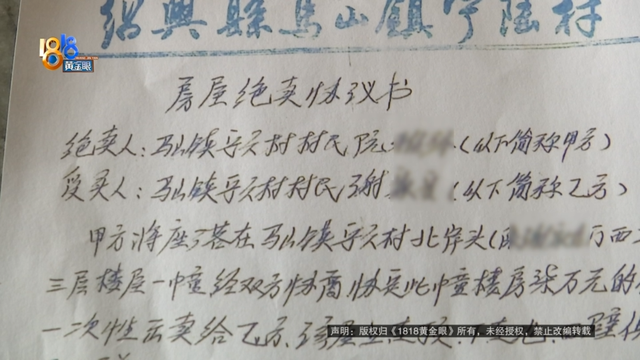 绍興縣馬山鎮宁陆村
1818
黄金眼
房屋绝卖协议书
绝卖人：马山镇宁六村村民阮（以下简称甲方）
受买人：马山镇宁六村村民谢（以下简称乙方）
甲方将座落在马山镇宁六村北岸头（西
三层楼屋一幢经双方协商，协定此幢楼房柒万元的
一次性出卖给乙方
声明：版权归《1818黄金眼》所有，未经授权，禁止改编转载